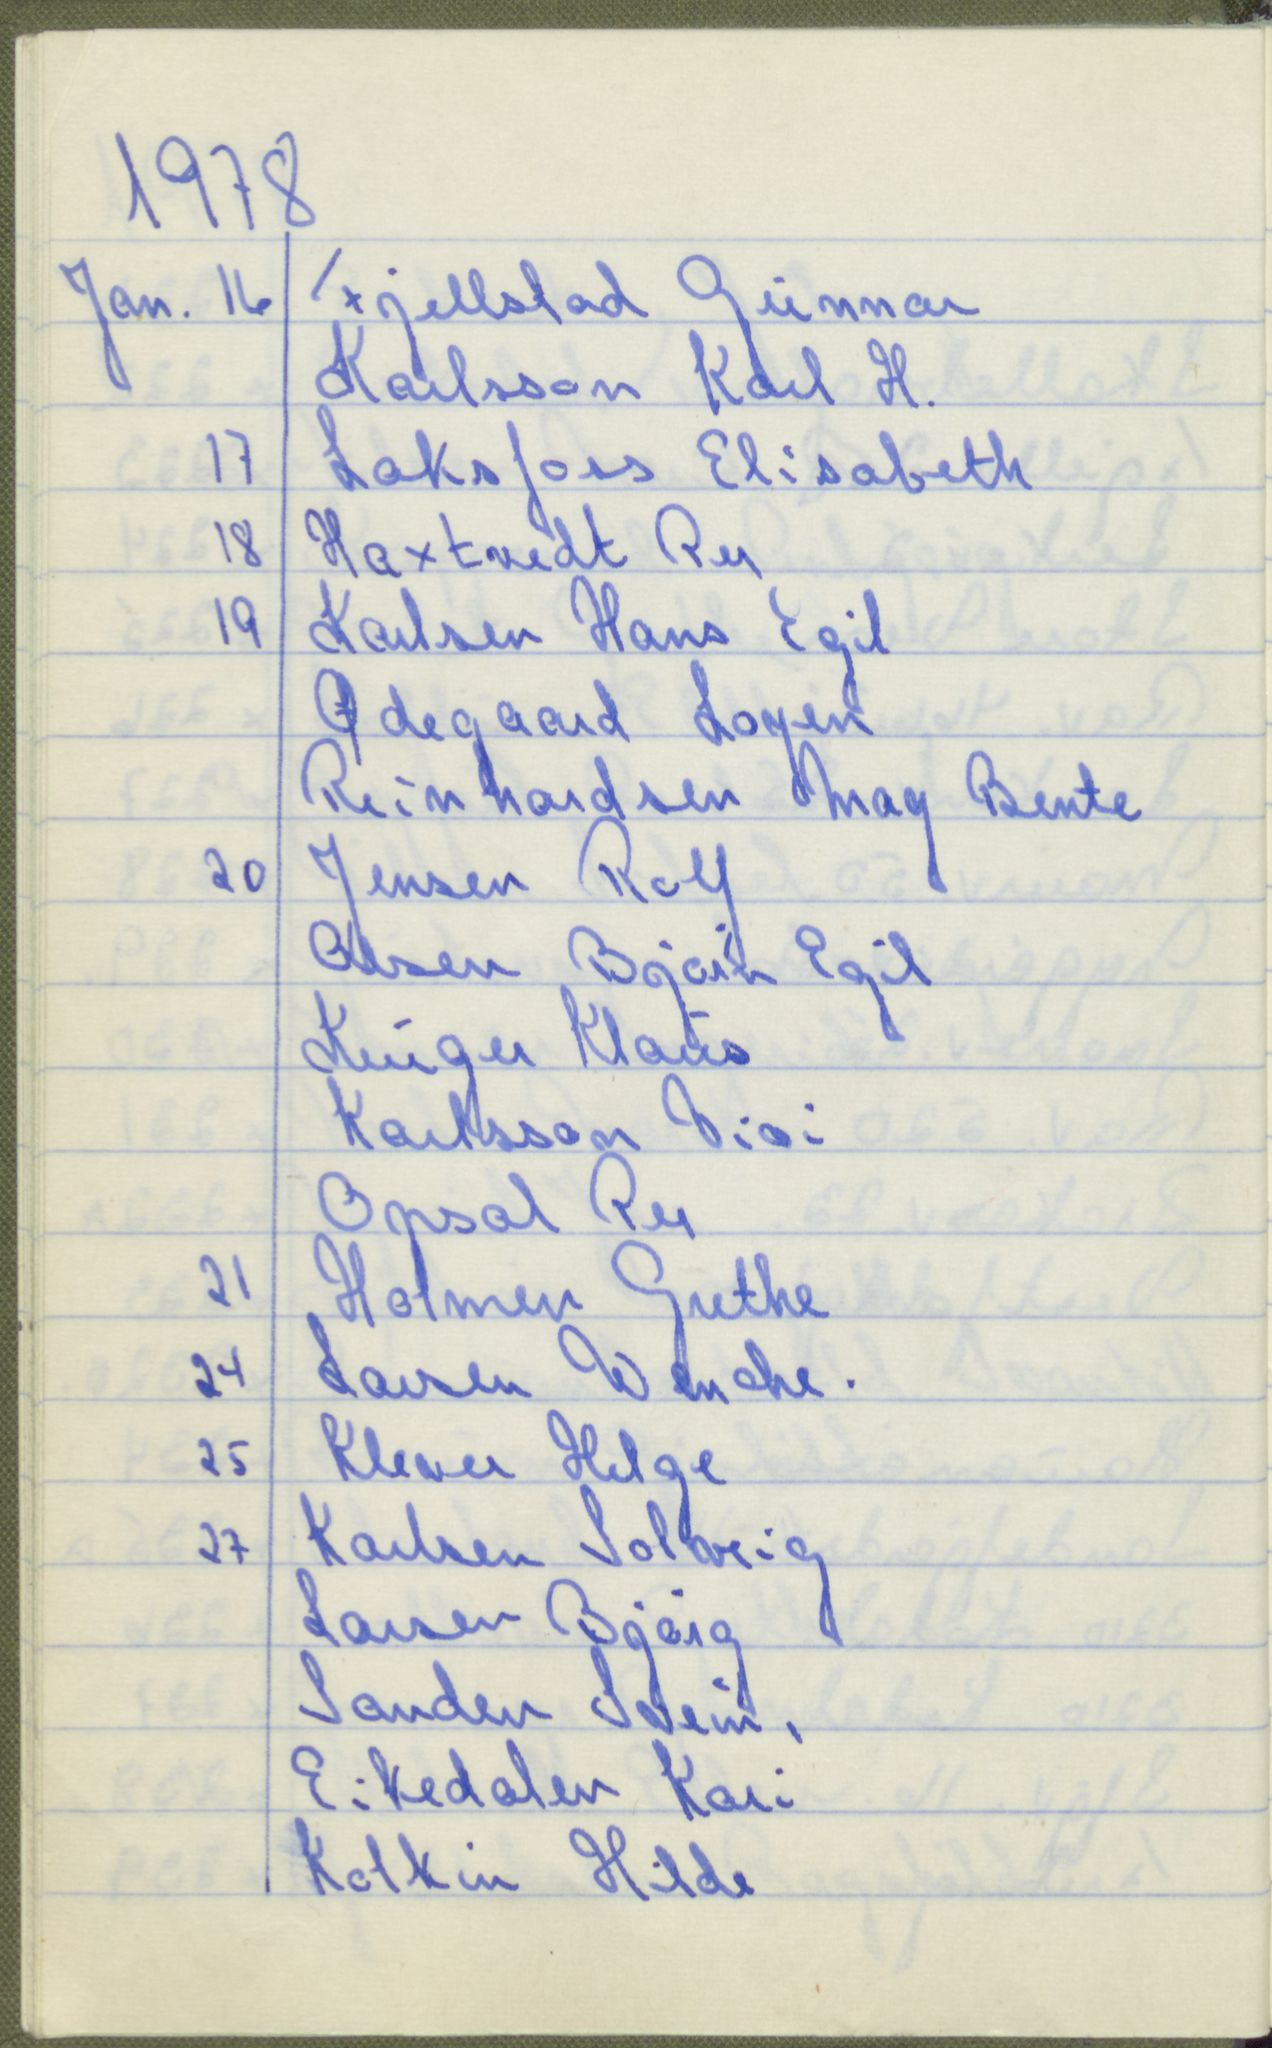 1978
Jan. 16 Fjellstad Gunnar
Karlsson Karl H.
17 Laksfoss Elisabeth
18 Haxtvedt Per
19 Karlsen Hans Egil
Ødegaard
Reinhardsen May Bente
20 Jensen Rolf
Olsen Bjørn Egil
Krüger Klaus
Karlsson Vivi
Opsal Per
21 Holmen Grethe
24 Larsen Wenche.
25 Klever Helge
27 Karlsen Solveig
Larsen Bjørg
Sanden Svein.
Eikedalen Kari
Kolkin Hilde